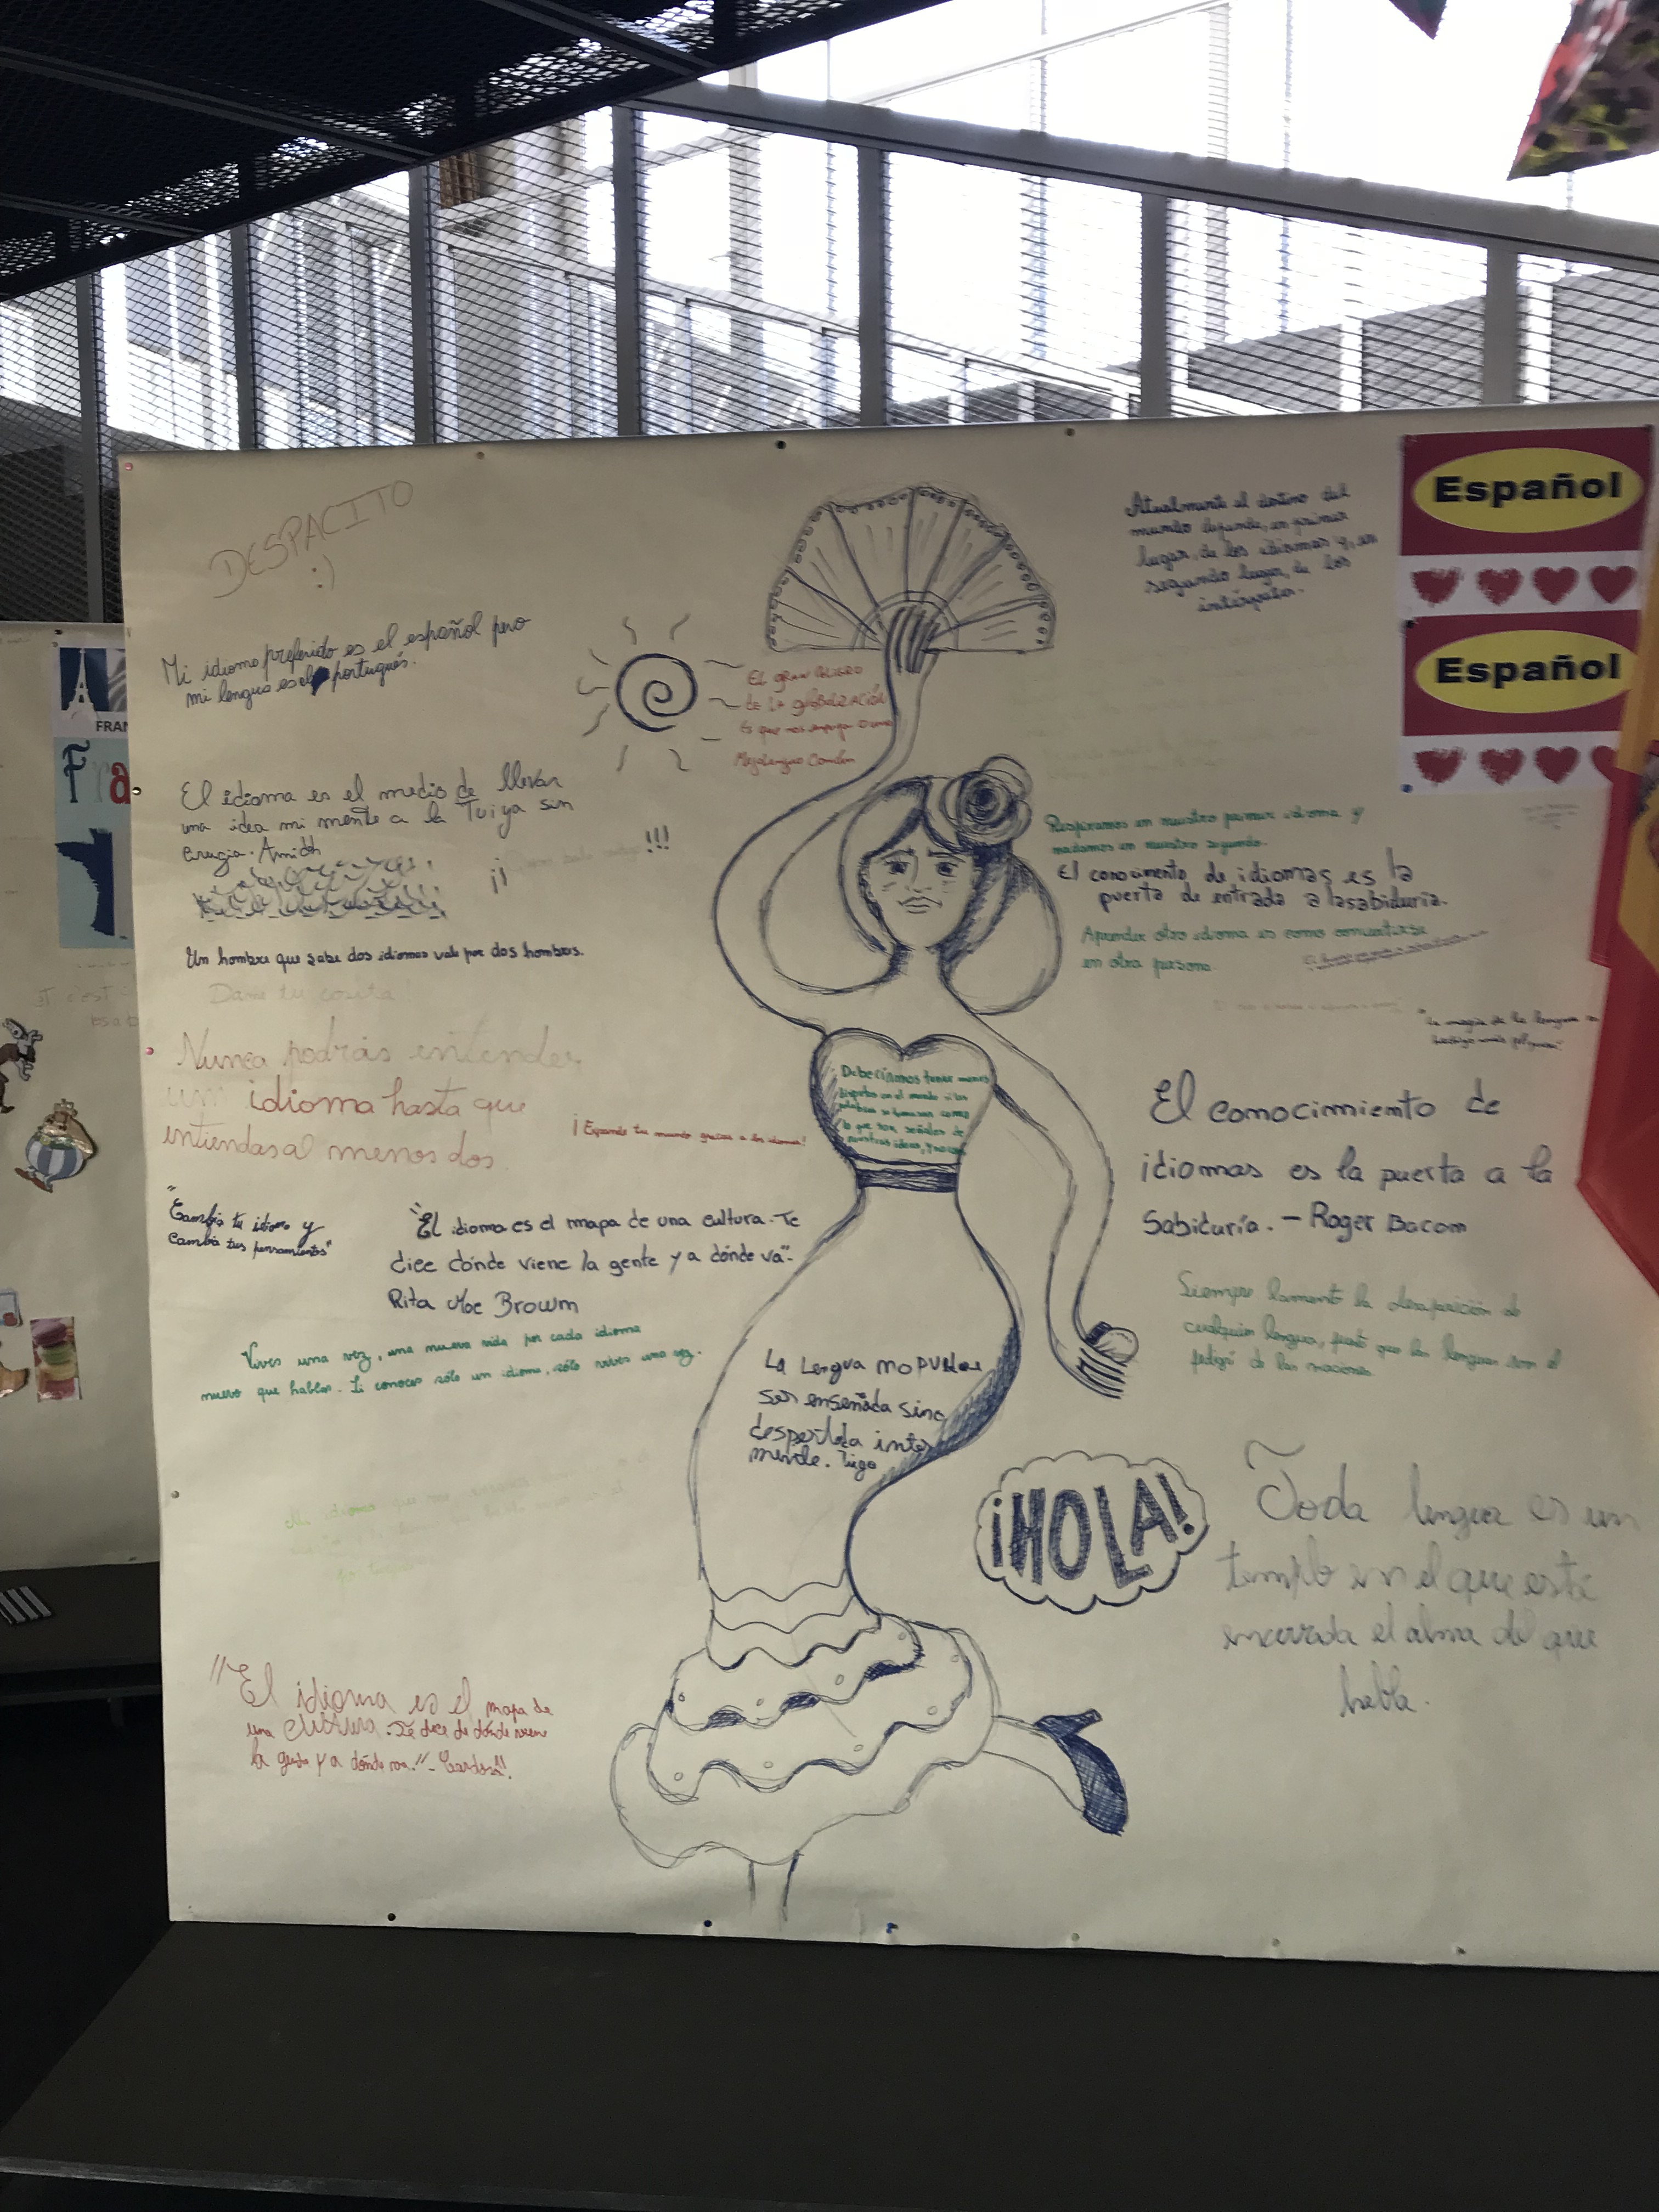 DESPACITO
:)
Mi idioma preferido es el español pero
mi lengua es el portugués.
El idioma es el medio de llevar
una idea mi mente a la Tuiya sin
cirugia. Amidh
¡¡ !!!
Un hombre que sabe dos idiomas vale por dos hombres.
Dame tu cosita!
Nunca podrás entender
un idioma hasta que
entiendas al menos dos.
¡Expande tu mundo gracias a los idiomas!
"Cambia tu idioma y
cambia tus pensamientos"
"El idioma es el mapa de una cultura. Te
dice dónde viene la gente y a dónde va".
Rita Mae Brown
Vives una vez, una nueva vida por cada idioma
nuevo que hablas. Si conoces sólo un idioma, sólo vives una vez.
Mi idioma que me
"El idioma es el mapa de
una cultura. Te dice de dónde viene
la gente y a dónde va."- Cardosa!!
El gran peligro
de la globalización
Es que nos empuja a una
Mezolengua Común
Deberíamos tener menos
disputas en el mundo si las
palabras se tomasen como
lo que son señales de
nuestras ideas, y no
La Lengua no puede
ser enseñada sino
despertada
mente.
¡HOLA!
Atualmente el destino del
mundo depende, en primer
lugar, de los idiomas y, en
segundo lugar, de los
intérpretes.
Español
Español
Respiramos en nuestro primer idioma y
nadamos en nuestro segundo.
El conocimento de idiomas es la
puerta de entrada a la sabiduria.
Aprender otro idioma es como convertirse
en otra persona.
"La magia de la lengua es
hechizo más
El conocimiento de
idiomas es la puerta a la
Sabiduría. - Roger Bacom
Siempre lamento la desaparición de
cualquier lengua, puesto que las lenguas son el
pedigrí de las naciones
Toda lengua es un
templo en el que está
encerrada el alma del que
habla.
FRAN
Fra